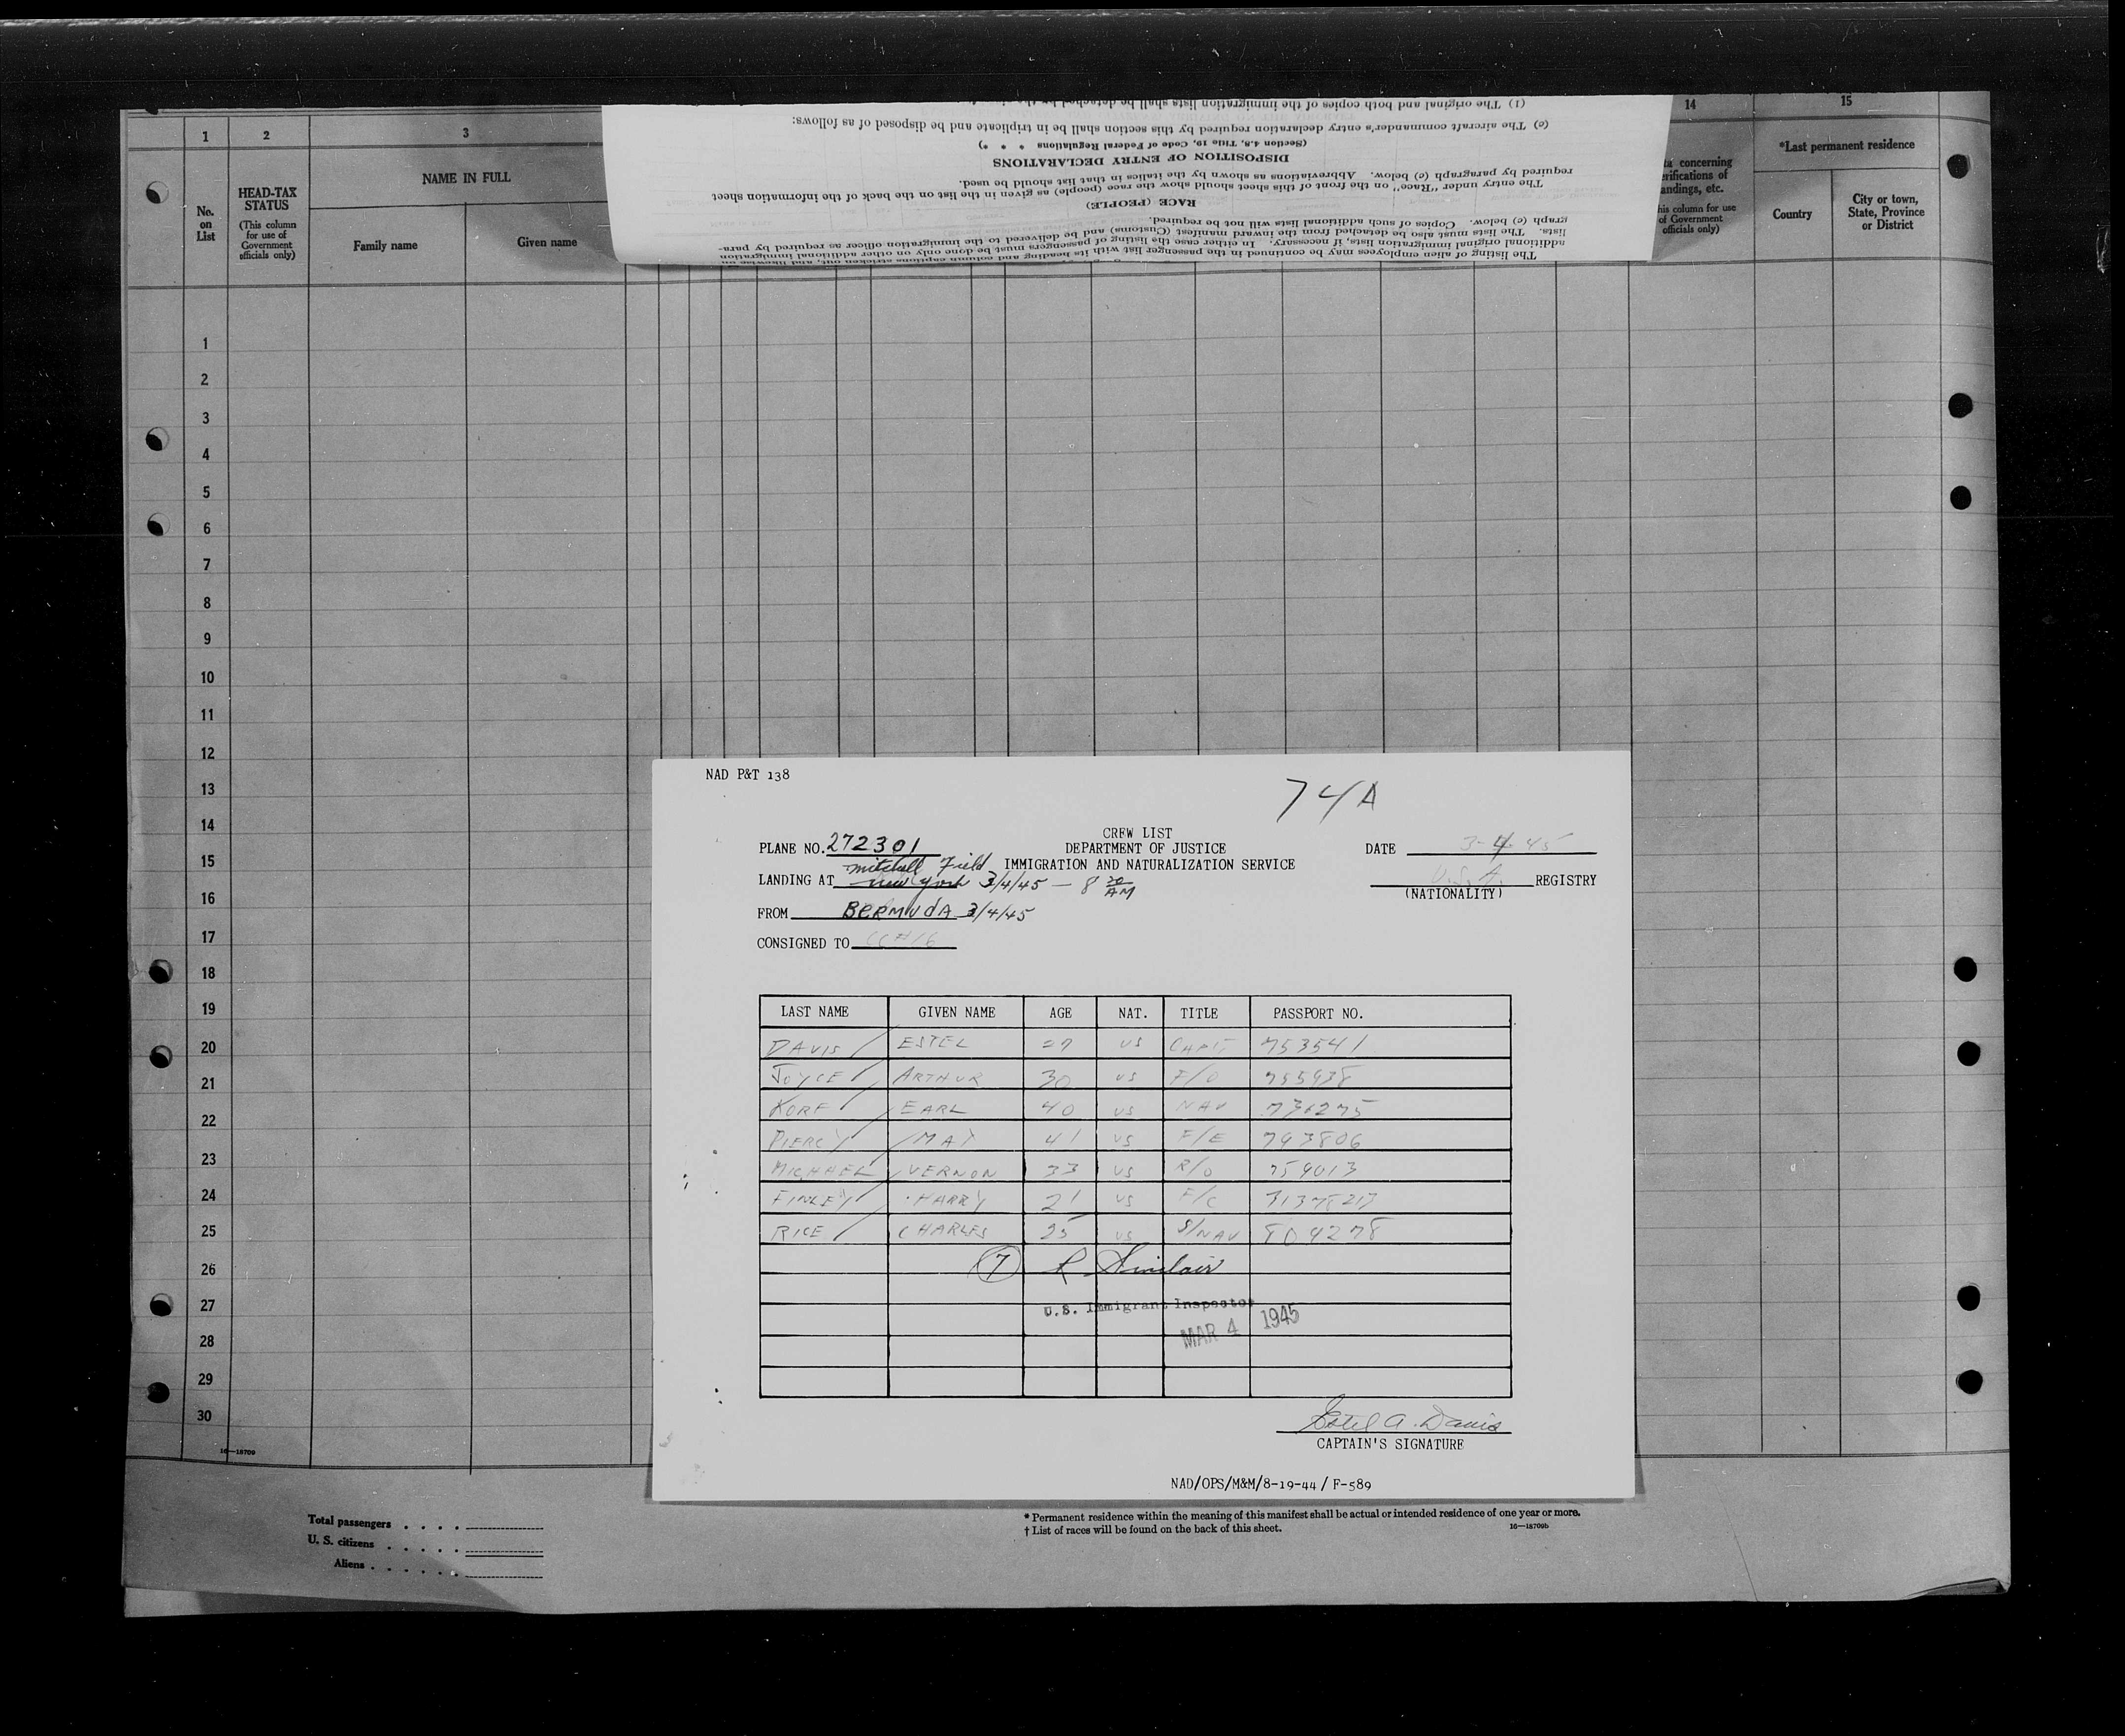 (1) The original and both copies of the immigration lists shall be detached
(e) The aircraft commander's entry declaration required by this section shall be in triplicate and be disposed of as follows:
(Section 4.8, Title 19, Code of Federal Regulations * * *)
DISPOSITION OF ENTRY DECLARATIONS
required by paragraph (e) below. Abbreviations as shown by the italics in that list should be used.
The entry under "Race" on the front of this sheet should show the race (people) as given in the list on the back of the information sheet
RACE (PEOPLE)
graph (e) below. Copies of such additional lists will not be required.
lists. The lists must also be detached from the inward manifest (Customs) and be delivered to the immigration officer as required by para-
additional original immigration lists, if necessary. In either case the listing of passengers must be done only on other additional immigration
The listing of alien employees may be continued in the passenger list with its heading and column captions stricken out, and likewise on
1 2 3 14 15
No. on List
HEAD-TAX STATUS
(This column for use of Government officials only)
NAME IN FULL
Family name Given name
ta concerning
erifications of
andings, etc.
his column for use
of Government
officials only)
*Last permanent residence
Country
City or town, State, Province or District
1
2
3
4
5
6
7
8
9
10
11
12
13
14
15
16
17
18
19
20
21
22
23
24
25
26
27
28
29
30
16—18709
NAD P&T 138
74A
CREW LIST
PLANE NO. 272301 DEPARTMENT OF JUSTICE DATE 3-4-45
Mitchell Field IMMIGRATION AND NATURALIZATION SERVICE
LANDING AT New York 3/4/45 — 8 20 AM U.S.A. REGISTRY
(NATIONALITY)
FROM BERMUDA 3/4/45
CONSIGNED TO
LAST NAME GIVEN NAME AGE NAT. TITLE PASSPORT NO.
DAVIS ESTEL 27 US CAPT. 753541
JOYCE ARTHUR 30 US F/O 755938
KORF EARL 40 US NAV 736275
PIERCY MAY 41 US F/E 793806
MICHAEL VERNON 33 US R/O 759013
FINLEY HARRY 21 US F/C
RICE CHARLES 25 US S/NAV 804278
7 R Sinclair
U.S. Immigrant Inspector
MAR 4 1945
Estel A. Davis
CAPTAIN'S SIGNATURE
NAD/OPS/M&M/8-19-44/F-589
Total passengers . . . .
U. S. citizens . . . . .
Aliens . . . . . .
* Permanent residence within the meaning of this manifest shall be actual or intended residence of one year or more.
† List of races will be found on the back of this sheet. 16—18709b